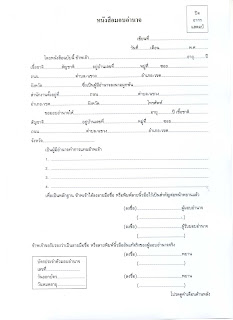 หนังสือมอบอำนาจ
ปิด
อากร
แสตมป์
เขียนที่
วันที่ เดือน พ.ศ.
โดยหนังสือฉบับนี้ ข้าพเจ้า อายุ ปี
เชื้อชาติ สัญชาติ อยู่บ้านเลขที่ หมู่ที่ ซอย
ถนน ตำบล/แขวง อำเภอ/เขต
จังหวัด ซึ่งเป็นผู้มีอำนาจลงนามผูกพัน
สำนักงานตั้งอยู่ที่ ถนน ตำบล/แขวง
อำเภอ/เขต จังหวัด โทรศัพท์
ขอมอบอำนาจให้ อายุ ปี เชื้อชาติ
สัญชาติ อยู่บ้านเลขที่ หมู่ที่ ซอย
ถนน ตำบล/แขวง อำเภอ/เขต
จังหวัด
เป็นผู้มีอำนาจทำการแทนข้าพเจ้า
1.
2.
3.
4.
เพื่อเป็นหลักฐาน ข้าพเจ้าได้ลงลายมือชื่อ หรือพิมพ์ลายนิ้วมือไว้เป็นสำคัญต่อหน้าพยานแล้ว
(ลงชื่อ) ผู้มอบอำนาจ
(ลงชื่อ) ผู้รับมอบอำนาจ
ข้าพเจ้าขอรับรองว่าเป็นลายมือชื่อ หรือลายพิมพ์นิ้วมืออันแท้จริงของผู้มอบอำนาจจริง
(ลงชื่อ) พยาน
(ลงชื่อ) พยาน
บัตรประจำตัวผู้มอบอำนาจ
เลขที่
วันออกบัตร
วันหมดอายุ
โปรดดูคำเตือนด้านหลัง